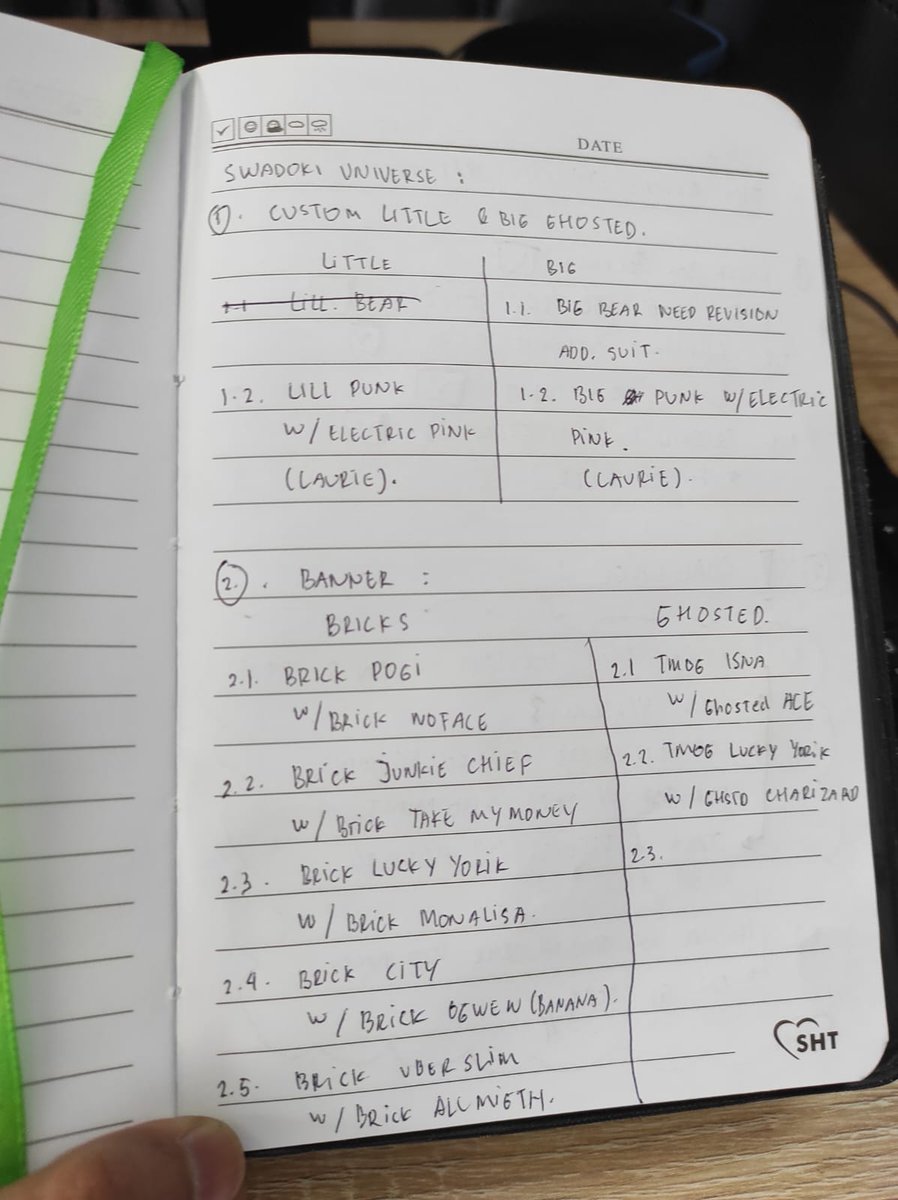 DATE
SWADOKI UNIVERSE :
1. CUSTOM LITTLE & BIG GHOSTED.
LITTLE
1.1 LILL. BEAR
1.2. LILL PUNK
W/ ELECTRIC PINK
(LAURIE).
BIG
1.1. BIG BEAR NEED REVISION
ADD. SUIT.
1.2. BIG PUNK W/ELECTRIC
PINK.
(LAURIE).
2. . BANNER :
BRICKS
2.1. BRICK POGI
W/BRICK NOFACE
2.2. BRICK JUNKIE CHIEF
W/ Brick TAKE MY MONEY
2.3. BRICK LUCKY YORIK
W/ BRICK MONALISA.
2.4. BRICK CITY
W/ BRICK OGWEN (BANANA).
2.5. BRICK UBERSLIM
W/ BRICK ALLMIETH.
GHOSTED.
2.1 TMOG ISNA
W/ Ghosted ACE
2.2. TMOG LUCKY YORIK
W/ GHSTD CHARIZARD
2.3.
SHT